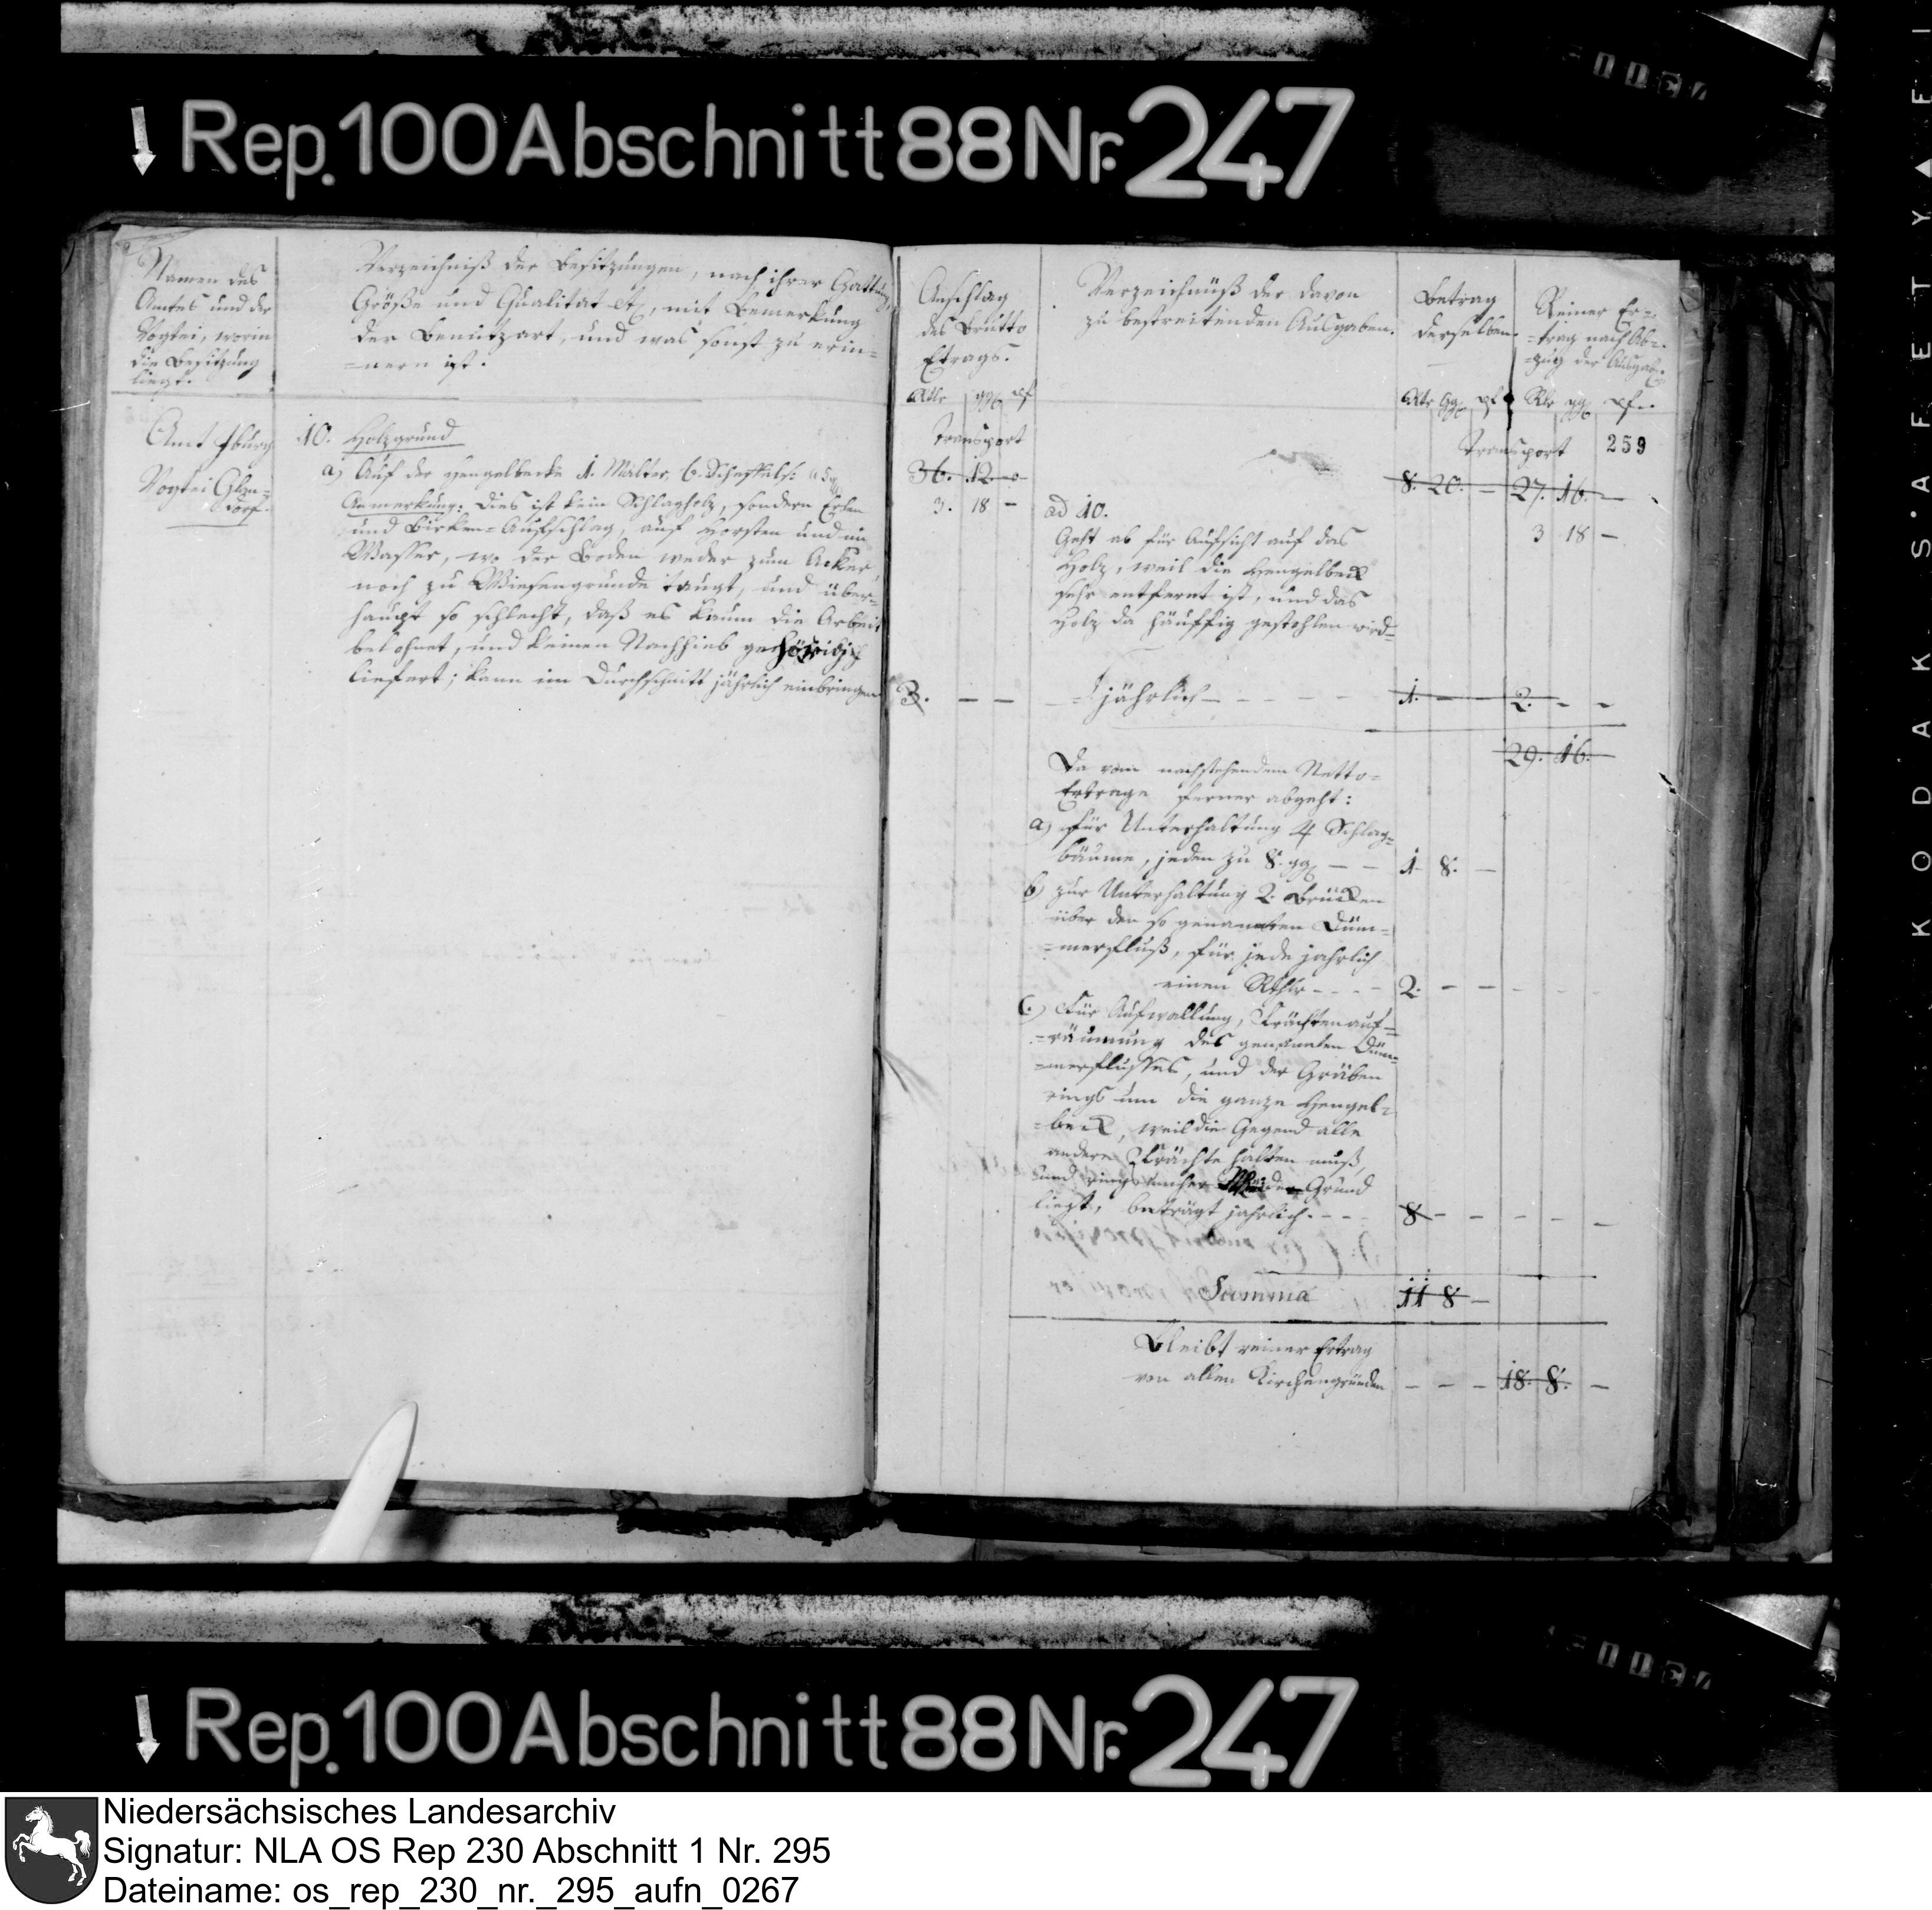 Rep. 100 Abschnitt 88 Nr. 247
Namen des
Amtes und der
Vogtei, worin
die Besitzung
liegt.
Verzeichniß der Besitzungen, nach ihrer Gattung,
Größe und Qualitat etc, mit Bemerkung
der Benutzart, und was sonst zu erin=
=nern ist.
Amt Iburg
Vogtei Glan=
dorf.
10. Holzgrund
a) Auf der Hengelbecke 1. Malter, 6. Scheffels:
Anmerkung: Dies ist kein Schlagholz, sondern Erlen
und Birken=Aufschlag, auf Horsten und im
Wasser, wo der Boden weder zum Acker
noch zu Wiesengrunde taugt, und über=
haupt so schlecht, daß es kaum die Arbeit
belohnet, und keinen Nachhieb gehörig
liefert; kann im Durchschnitt jährlich einbringen
Anschlag
des Brutto
Etrags.
Rtlr ggl pf
Transport
36. 12. -
3. 18 -
3. - -
Verzeichnüß der davon
zu bestreitenden Ausgaben.
ad 10.
Geht ab für Aufsicht auf das
Holz, weil die Hengelbeck
sehr entfernt ist, und das
Holz da häuffig gestohlen wird=
= jährlich - - -
Da vom nachstehendem Netto=
Ertrage ferner abgeht:
a) für Unterhaltung 4 Schlag=
bäume, jeden zu 8. ggl - -
b) zur Unterhaltung 2. Brücken
über den so genannten Düm=
=merfluß, für jede jahrlich
einen Rthlr - - - -
c.) Für Aufwallung, Krächtenauf=
=räumung des genannten Düm=
=merflusses, und der Gräben
rings um die ganze Hengel=
=beck, weil die Gegend alle
andere Krächte halten muß,
und rings umher Grund
liegt, beträgt jahrlich. - - -
Summa
Bleibt reiner Ertrag
von allen Kirchengründen
Betrag
derselben.
Rtlr ggl pf
8. 20. -
1. - -
1 - 8. -
2. - -
8 - -
11 8 -
- - -
Reiner Er=
=trag nach Ab=
=zug der Ausgab.
Rlr ggl pf.
Transport
259
27. 16. -
3 18 -
2. - -
29. 16. -
18. 8. -
Rep. 100 Abschnitt 88 Nr. 247
KODAK · SAFETY
Niedersächsisches Landesarchiv
Signatur: NLA OS Rep 230 Abschnitt 1 Nr. 295
Dateiname: os_rep_230_nr._295_aufn_0267